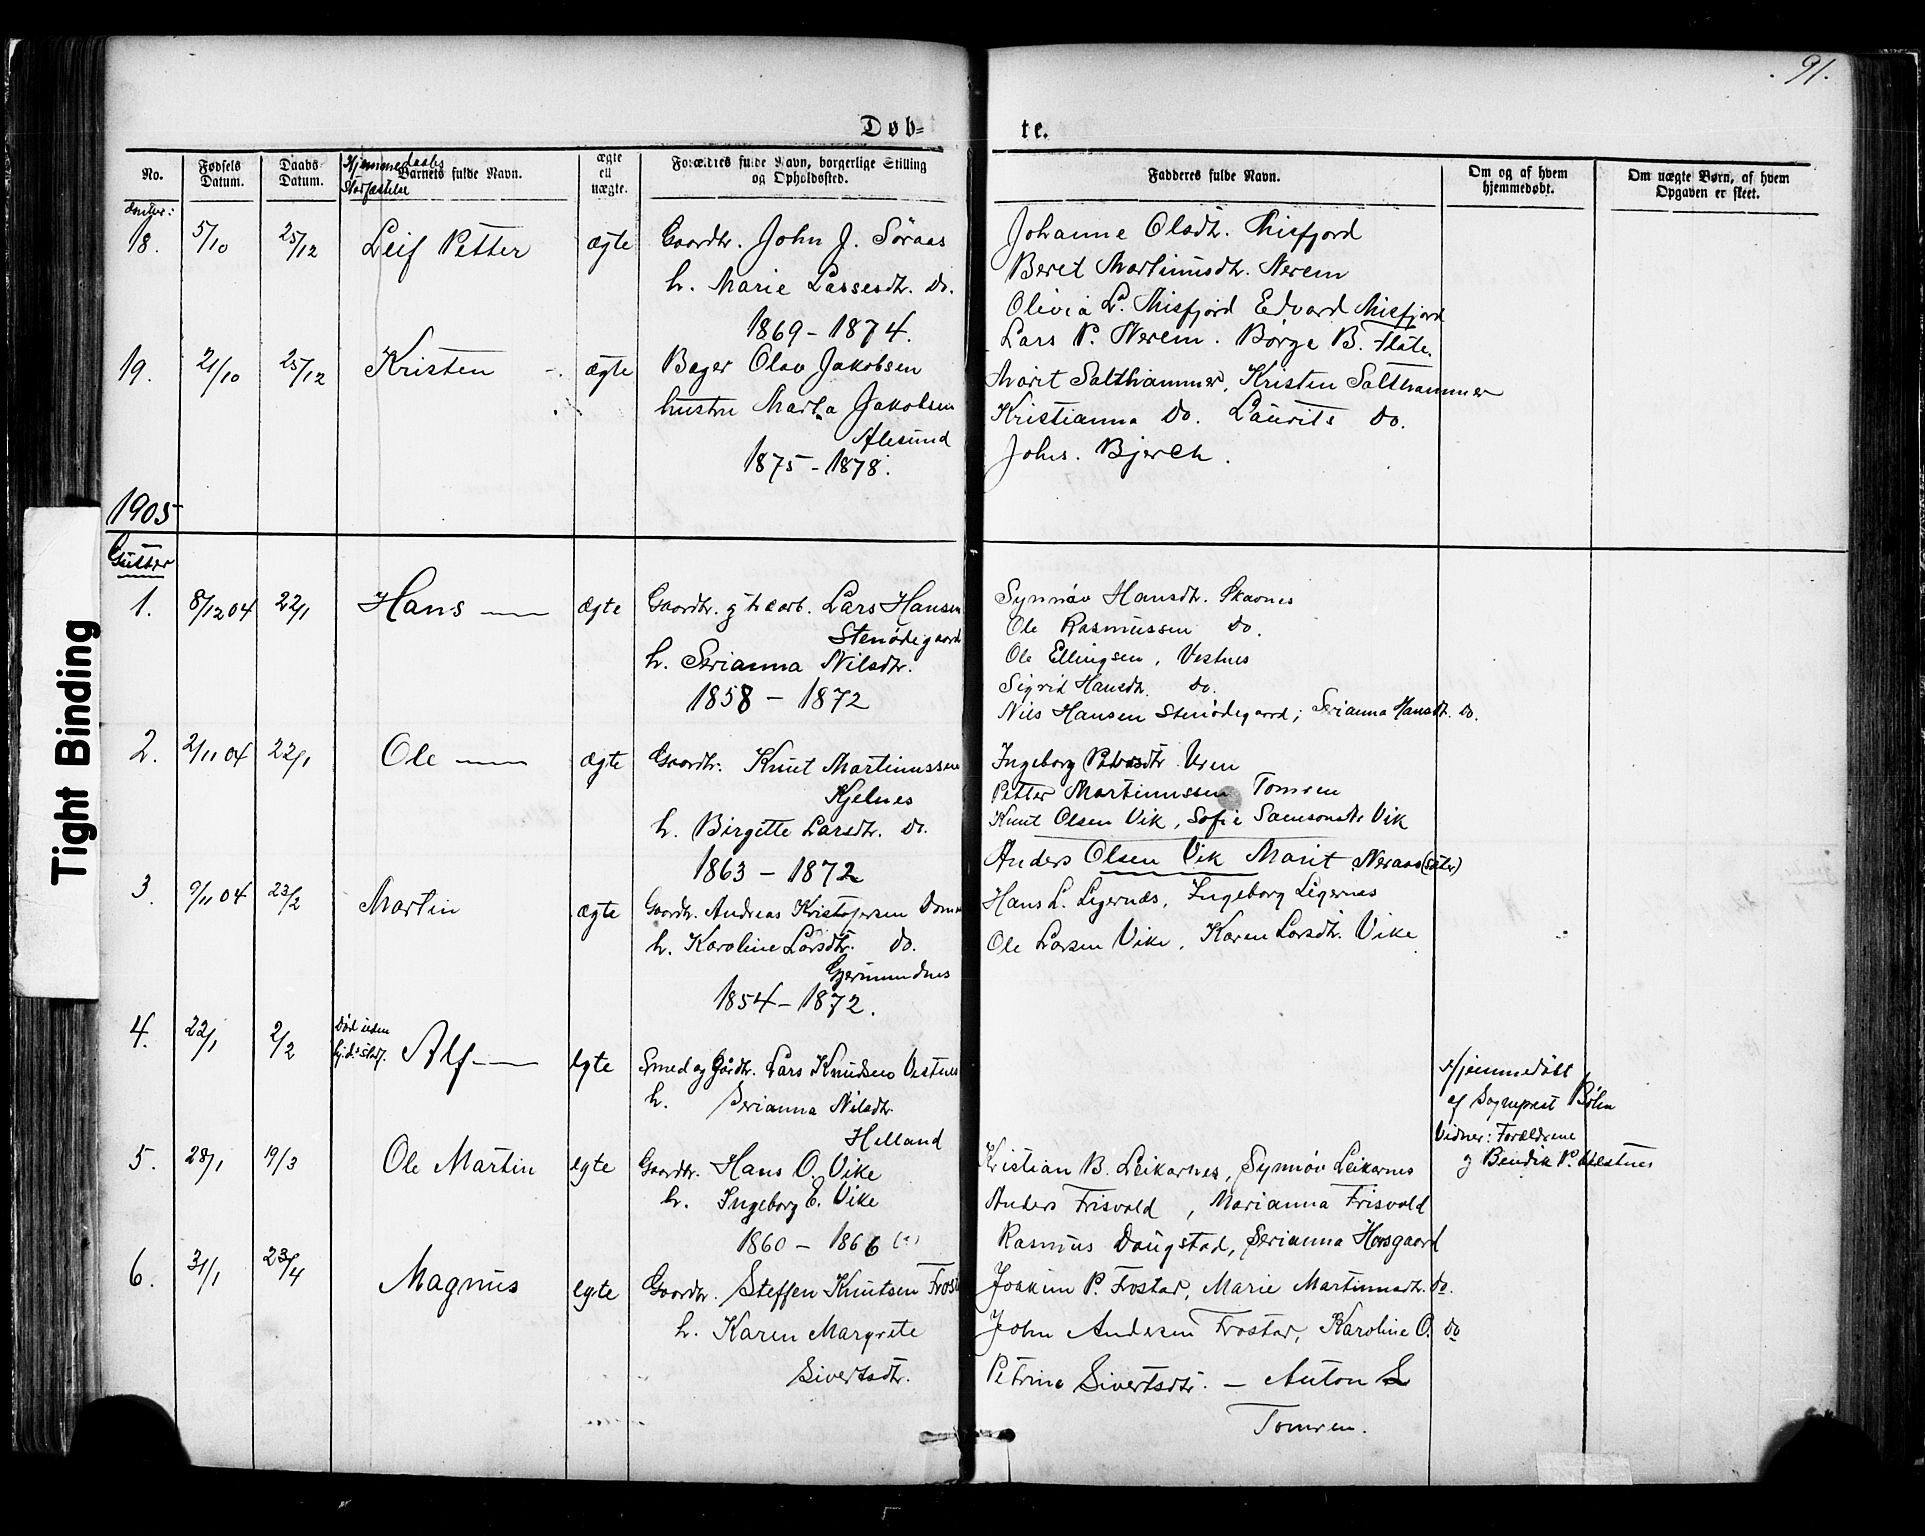 91.
Døb=
te.
No.
Fødsels Datum.
Daabs Datum.
Hjemmedaabs
Stadfæstelse
Barnets fulde Navn.
ægte ell uægte.
Forældres fulde Navn, borgerlige Stilling og Opholdssted.
Fadderes fulde Navn.
Om og af hvem hjemmedøbt.
Om uægte Børn, af hvem Opgaven er skeet.
18. 5/10 25/12 Leif Petter ægte Gaardbr. John J. Søraas
h. Marie Lassesdtr. Do.
1869 - 1874.
Johanne Olsdtr. Misfjord
Beret Martinusdtr. Nerem
Olivia L. Misfjord Edvard Misfjord
Lars P. Nerem. Børge B. Flate.
19. 21/10 25/12 Kristen ægte Bager Olav Jakobsen
hustru Marta Jakobsen
Alesund
1875 - 1878.
Marit Salthammer, Kristen Salthammer
Kristianna Do. Laurits Do.
Johs. Bjerch.
1905
Gutter
1. 8/12 04 22/1 Hans ægte Gaardbr. g træarb. Lars Hansen
Stenødegaard
h. Serianna Nilsdtr.
1858 - 1872
Synnøv Hansdtr. Skavnes
Ole Rasmussen Do.
Ole Ellingsen, Vestnes
Sigrid Hansdtr. Do.
Nils Hansen Stenødegaard; Serianna Hansdtr. Do.
2. 2/11 04 22/1 Ole ægte Gaardbr. Knut Martinussen
Kjelnes
h. Birgitte Larsdtr. Do.
1863 - 1872
Ingeborg Petersdtr Uren
Petter Martinussen Tomren
Knut Olsen Vik, Sofie Samsonsdtr Vik
Anders Olsen Vik Marit Neraas
3. 9/11 04 23/2 Martin ægte Gaardbr. Andreas Kristofersen
h. Karoline Larsdtr. Do.
Gjermundnes
1854 - 1872.
Hans L. Ligernes, Ingeborg Ligernes
Ole Larsen Vike, Karen Larsdtr. Vike
4. 22/1 2/2 Død uden
hj.d. stadf. Alf ægte Smed og Gårdbr. Lars Knudsen Vestnes
h. Serianna Nilsdtr.
Helland
Hjemmedøbt
af Sogneprest Bøhn
Vidner: Forældrene
g Bendik P. Vestnes
5. 28/1 19/3 Ole Martin ægte Gaardbr. Hans O. Vike
h. Ingeborg E. Vike
1860 - 1866
Kristian B. Leikarnes, Synnøv Leikarnes
Anders Frisvold, Marianna Frisvold
Rasmus Daugstad, Serianna Horsgaard
6. 31/1 23/4 Magnus ægte Gaardbr. Steffen Knutsen Frostad
h. Karen Margrete
Sivertsdtr.
Joakim P. Frostad, Marie Martinusdtr. do.
John Andersen Frostad, Karoline O. do
Petrine Sivertsdtr. - Anton S
Tomren.
Tight Binding